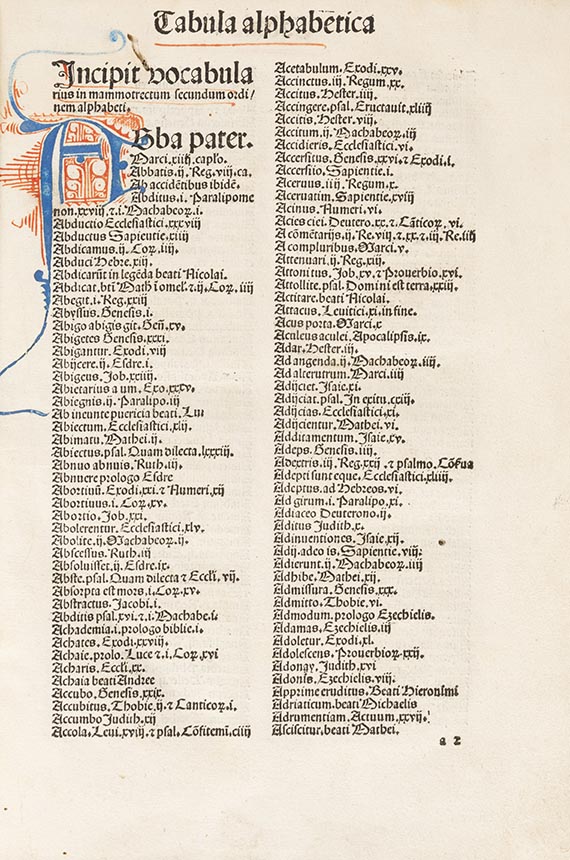 Tabula alphabetica
Incipit vocabula
rius in mammotrectum secundum ordi/
nem alphabeti.
Abba pater.
Marci.xiiij.caplo.
Abbatis.ij.Reg.viij.ca.
Ab accidētibus ibidē.
Abditus.i.Paralipome
non.xxviij.⁊.i.Machabeoꝝ.i.
Abductio Ecclesiastici.xxxviij
Abductus Sapientie.xiiij
Abdicamus.ij.Coꝝ.iiij.
Abduci Hebre.xiij.
Abdicarūt in legēda beati Nicolai.
Abdicat.bti Math i omel.⁊.ij.Coꝝ.iiij
Abegit.i.Reg.xxiij
Abyssus.Genesis.i.
Abigo abigis git.Geñ.xv.
Abigetes Genesis.xxxi.
Abigantur.Exodi.viij
Abijcere.ij.Esdre.i.
Abigeus.Job.xxiiij.
Abietarius a um.Exo.xxxv.
Abiegnis.ij.Paralipo.iij
Ab ineunte puericia beati.Lu
Abiectum.Ecclesiastici.xlij.
Abimatu.Mathei.ij.
Abiectus.psal.Quam dilecta.lxxxiij.
Abnuo abnuis.Ruth.iij.
Abnuere prologo Esdre
Abortiuū.Exodi.xxi.⁊ Numeri.xij
Abortiuus.i.Coꝝ.xv.
Abortio.Job.xxi.
Abolerentur.Ecclesiastici.xlv.
Abolite.ij.Machabeoꝝ.ij.
Abscessus.Ruth.iij
Absoluisset.ij.Esdre.ix.
Abste.psal.Quam dilecta ⁊ Eccli.vij.
Absorpta est mors.i.Coꝝ.xv.
Abstractus.Jacobi.i.
Abditis psal.xvi.⁊.i.Machabe.i.
Achademia.i.prologo biblie.i.
Achates.Exodi.xxviij.
Achaie.prolo.Luce ⁊.i.Coꝝ.xvi
Acharis.Eccli.xx.
Achaia beati Andree
Accubo.Genesis.xxix.
Accubitus.Thobie.ij.⁊ Canticoꝝ.i.
Accumbo Judith.xij
Accola.Leui.xviij.⁊ psal.Cōfitemī.ciiij
Acetabulum.Exodi.xxv.
Accinctus.iij.Regum.xx.
Accitus.Hester.iiij.
Accingere.psal.Eructauit.xliiij
Accitis.Hester.viij.
Accitum.ij.Machabeoꝝ.iij.
Accidieris.Ecclesiastici.vi.
Accersitus.Genesis.xxvi.⁊ Exodi.i.
Accersiio.Sapientie.i.
Aceruus.iij.Regum.x.
Aceruatim.Sapientie.xviij
Acinus.Numeri.vi.
Acies ciei.Deutero.xx.⁊ Cāticoꝝ.vi.
Acōmētarijs.ij.Re.viij.⁊.xx.⁊.iij.Re.iiij
A compluribus.Marci.v.
Attenuari.ij.Reg.xij.
Attonitus.Job.xv.⁊ Prouerbio.xvi.
Attollite.psal.Domini est terra.xxiij.
Actitare.beati Nicolai.
Attacus.Leuitici.xi.in fine.
Acus porta.Marci.x
Aculeus aculei.Apocalipsis.ix.
Adar.Hester.iij.
Ad angenda.ij.Machabeoꝝ.iiij.
Ad alterutrum.Marci.iiij
Adijciet.Isaie.xi.
Adijciat.psal.In exitu.cxiij.
Adijcias.Ecclesiastici.xi.
Adijcientur.Mathei.vi.
Additamentum.Isaie.xv.
Adeps.Genesis.iiij.
Adextris.iij.Reg.xxij.⁊ psalmo.
Adepti sunt eque.Ecclesiastici.xliiij.
Adeptus.ad Hebreos.vi.
Ad girum.i.Paralipo.xi.
Adiaceo Deuterono.ij.
Aditus Judith.x.
Adinuentiones.Isaie.xij.
Adij.adeo is.Sapientie.viij.
Adierunt.ij.Machabeoꝝ.iiij
Adhibe.Mathei.xij.
Admissura.Genesis.xxx.
Admitto.Thobie.vi.
Admodum.prologo Ezechielis.
Adamas.Ezechielis.iij
Adoletur.Exodi.xl.
Adolescens.Prouerbioꝝ.xxij.
Adonay.Judith.xvi
Adonis.Ezechielis.viij.
Apprime eruditus.Beati Hieronimi
Adriaticum.beati Michaelis
Adrumentiam.Actuum.xxvij.
Asciscitur.beati Mathei.
a 2